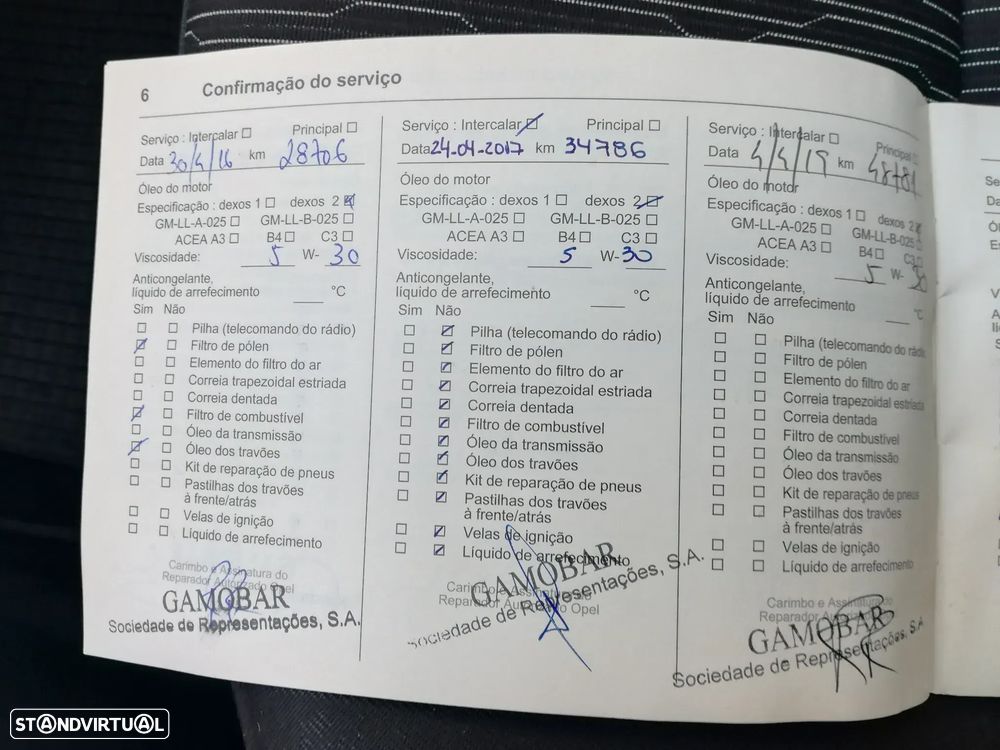 6 Confirmação do serviço
Serviço : Intercalar ☐ Principal ☐
Data 30/4/16 km 28706
Óleo do motor
Especificação : dexos 1 ☐ dexos 2 ☑
GM-LL-A-025 ☐ GM-LL-B-025 ☐
ACEA A3 ☐ B4 ☐ C3 ☐
Viscosidade: 5 W- 30
Anticongelante,
líquido de arrefecimento ___ °C
Sim Não
☐ ☐ Pilha (telecomando do rádio)
☑ ☐ Filtro de pólen
☐ ☐ Elemento do filtro do ar
☐ ☐ Correia trapezoidal estriada
☐ ☐ Correia dentada
☑ ☐ Filtro de combustível
☐ ☐ Óleo da transmissão
☑ ☐ Óleo dos travões
☐ ☐ Kit de reparação de pneus
☐ ☐ Pastilhas dos travões
à frente/atrás
☐ ☐ Velas de ignição
☐ ☐ Líquido de arrefecimento
Carimbo e Assinatura do
Reparador Autorizado Opel
GAMOBAR
Sociedade de Representações, S.A.
Serviço : Intercalar ☑ Principal ☐
Data 24-04-2017 km 34786
Óleo do motor
Especificação : dexos 1 ☐ dexos 2 ☑
GM-LL-A-025 ☐ GM-LL-B-025 ☐
ACEA A3 ☐ B4 ☐ C3 ☐
Viscosidade: 5 W- 30
Anticongelante,
líquido de arrefecimento ___ °C
Sim Não
☐ ☑ Pilha (telecomando do rádio)
☐ ☑ Filtro de pólen
☐ ☑ Elemento do filtro do ar
☐ ☑ Correia trapezoidal estriada
☐ ☑ Correia dentada
☐ ☑ Filtro de combustível
☐ ☑ Óleo da transmissão
☐ ☑ Óleo dos travões
☐ ☑ Kit de reparação de pneus
☐ ☑ Pastilhas dos travões
à frente/atrás
☐ ☑ Velas de ignição
☐ ☑ Líquido de arrefecimento
Carimbo e Assinatura do
Reparador Autorizado Opel
GAMOBAR
Sociedade de Representações, S.A.
Serviço : Intercalar ☐ Principal ☐
Data 4/4/19 km 48781
Óleo do motor
Especificação : dexos 1 ☐ dexos 2
GM-LL-A-025 ☐ GM-LL-B-025
ACEA A3 ☐ B4 ☐ C3
Viscosidade: 5 W- 30
Anticongelante,
líquido de arrefecimento ___ °C
Sim Não
☐ ☐ Pilha (telecomando do rádio
☐ ☐ Filtro de pólen
☐ ☐ Elemento do filtro do ar
☐ ☐ Correia trapezoidal estriada
☐ ☐ Correia dentada
☐ ☐ Filtro de combustível
☐ ☐ Óleo da transmissão
☐ ☐ Óleo dos travões
☐ ☐ Kit de reparação de pneus
☐ ☐ Pastilhas dos travões
à frente/atrás
☐ ☐ Velas de ignição
☐ ☐ Líquido de arrefecimento
Carimbo e Assinatura do
Reparador Autorizado
GAMOBAR
Sociedade de Representações, S.A
STANDVIRTUAL